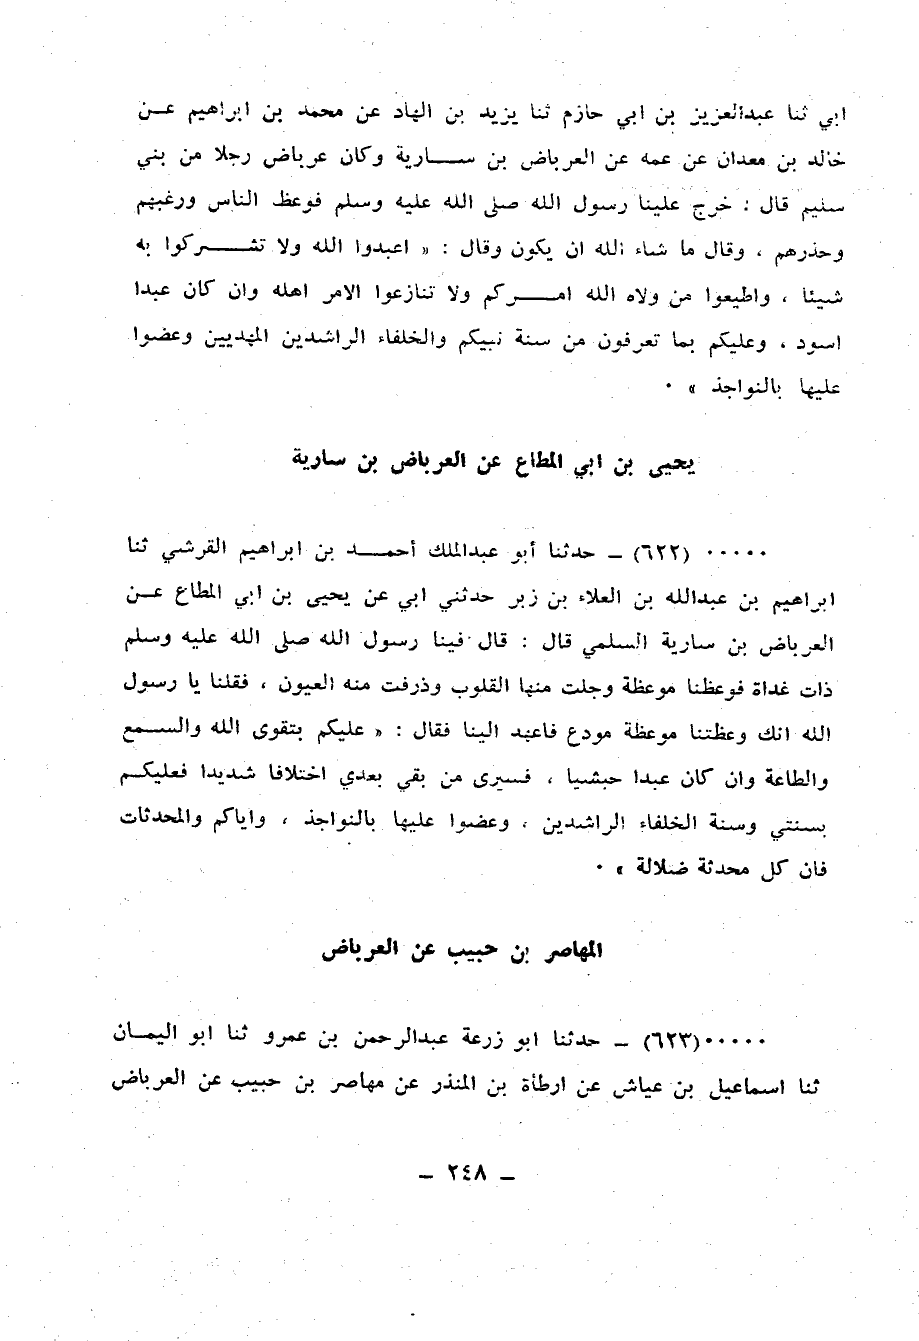 ابي ثنا عبدالعزيز بن ابي حازم ثنا يزيد بن الهاد عن محمد بن ابراهيم عن
خالد بن معدان عن عمه عن العرباض بن سارية وكان عرباض رجلا من بني
سليم قال : خرج علينا رسول الله صلى الله عليه وسلم فوعظ الناس ورغبهم
وحذرهم ، وقال ما شاء الله ان يكون وقال : « اعبدوا الله ولا تشركوا به
شيئا ، واطيعوا من ولاه الله امركم ولا تنازعوا الامر اهله وان كان عبدا
اسود ، وعليكم بما تعرفون من سنة نبيكم والخلفاء الراشدين المهديين وعضوا
عليها بالنواجذ » ٠
يحيى بن ابي المطاع عن العرباض بن سارية
٠٠٠٠٠ (٦٢٢) ــ حدثنا أبو عبدالملك أحمد بن ابراهيم القرشي ثنا
ابراهيم بن عبدالله بن العلاء بن زبر حدثني ابي عن يحيى بن ابي المطاع عن
العرباض بن سارية السلمي قال : قال فينا رسول الله صلى الله عليه وسلم
ذات غداة فوعظنا موعظة وجلت منها القلوب وذرفت منه العيون ، فقلنا يا رسول
الله انك وعظتنا موعظة مودع فاعهد الينا فقال : « عليكم بتقوى الله والسمع
والطاعة وان كان عبدا حبشيا ، فسيرى من بقي بعدي اختلافا شديدا فعليكم
بسنتي وسنة الخلفاء الراشدين ، وعضوا عليها بالنواجذ ، واياكم والمحدثات
فان كل محدثة ضلالة » ٠
المهاصر بن حبيب عن العرباض
٠٠٠٠٠(٦٢٣) ــ حدثنا ابو زرعة عبدالرحمن بن عمرو ثنا ابو اليمان
ثنا اسماعيل بن عياش عن ارطأة بن المنذر عن مهاصر بن حبيب عن العرباض
ــ ٢٤٨ ــ